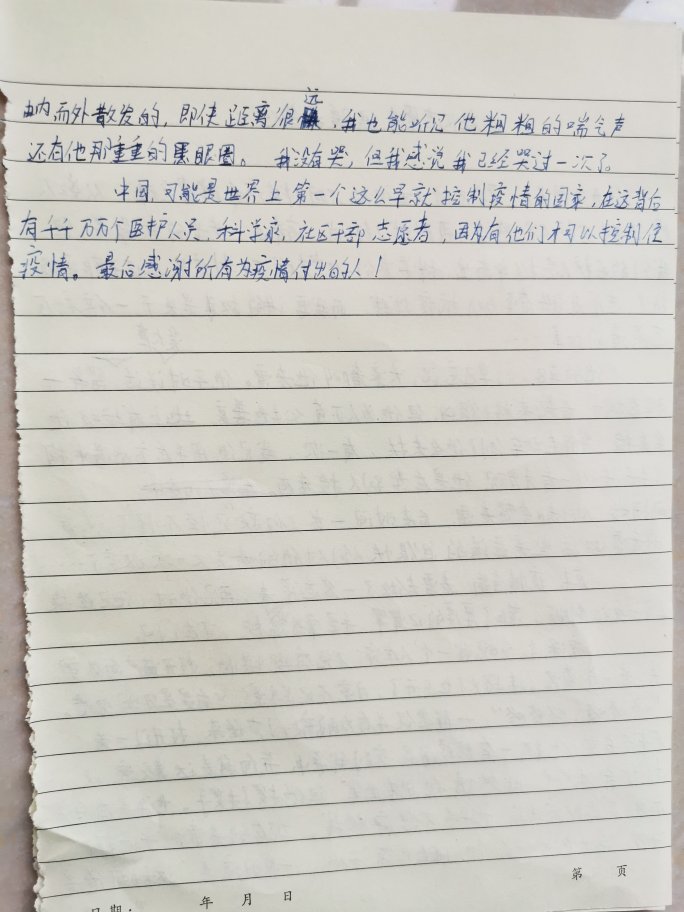 由内而外散发的，即使距离很远，我也能听见他粗粗的喘气声
还有他那重重的黑眼圈。我没有哭，但我感说我已经哭过一次了。
中国，可能是世界上第一个这么早就控制疫情的国家，在这背后
有千千万万个医护人员，科学家，社区干部志愿者，因为有他们才可以控制住
疫情。最后感谢所有为疫情付出的人！
第 页
日期： 年 月 日